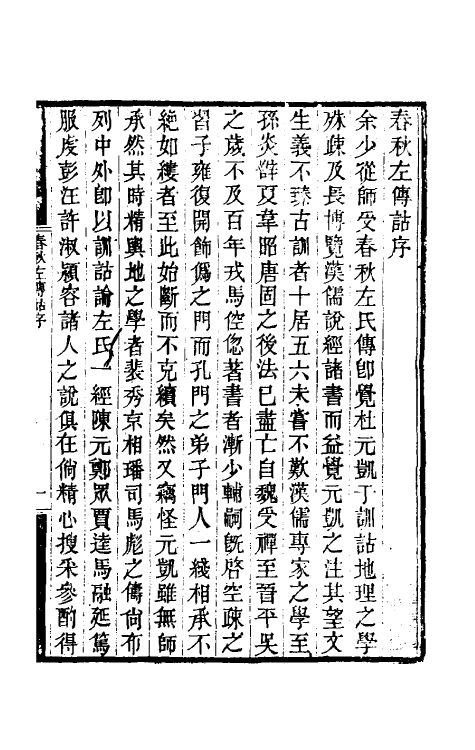 春秋左傳詁序
余少從師受春秋左氏傳卽覺杜元凱于訓詁地理之學
殊疎及長博覽漢儒說經諸書而益覺元凱之注其望文
生義不臻古訓者十居五六未嘗不歎漢儒專家之學至
孫炎薛夏韋昭唐固之後法已盡亡自魏受禪至晉平吳
之歲不及百年戎馬倥偬著書者漸少輔嗣旣啓空疎之
習子雍復開飾僞之門而孔門之弟子門人一綫相承不
絶如縷者至此始斷而不克續矣然又竊怪元凱雖無師
承然其時精輿地之學者裴秀京相璠司馬彪之儔尙布
列中外卽以訓詁論左氏一經陳元鄭眾賈逵馬融延篤
服虔彭汪許淑潁容諸人之說俱在倘精心搜采參酌得
春秋左傳詁序
一